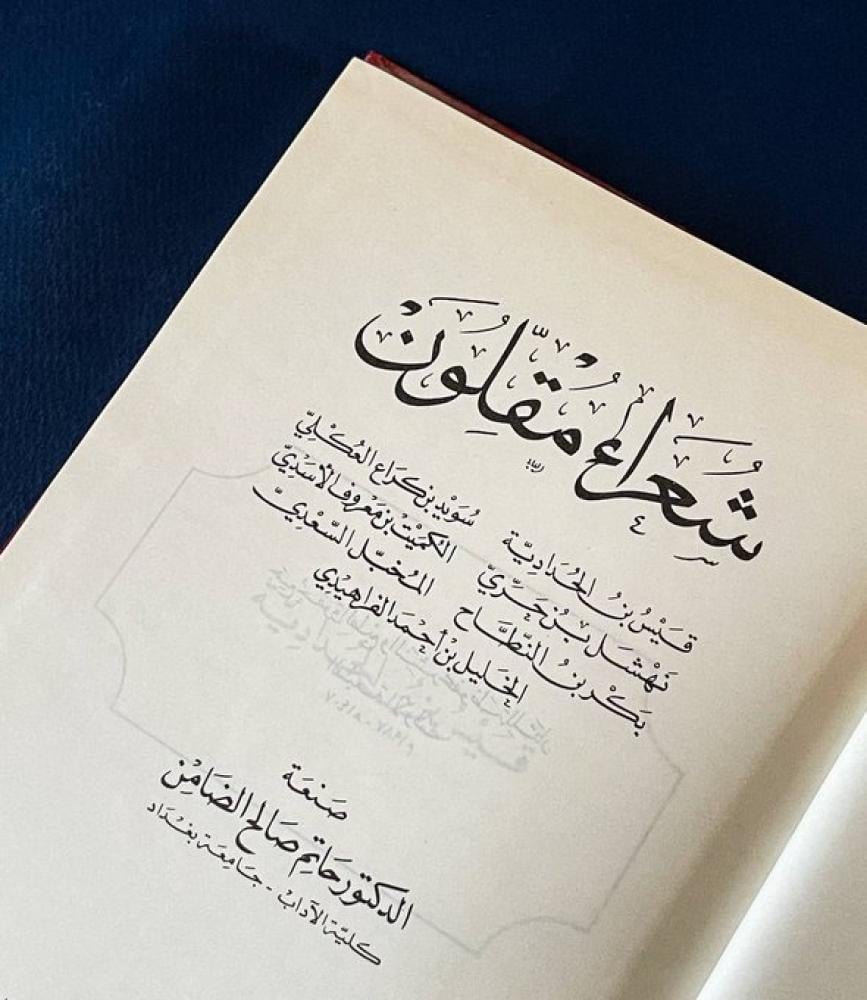 شُعَرَاءٌ مُقِلُّونَ
قَيْسُ بنُ الحُدَادِيَّة سُوَيْد بن كُرَاع العُكْلِيّ
نَهْشَل بن حَرِّيّ الكُمَيْت بن مَعْرُوف الأَسَدِيّ
بَكْر بنُ النَّطَّاح المُخَبَّل السَّعْدِيّ
الخَلِيل بن أَحْمَد الفَرَاهِيْدِي
صَنعَة
الدكتور حَاتِم صَالح الضَّامِن
كليّة الآداب - جَامِعَة بَغْدَاد